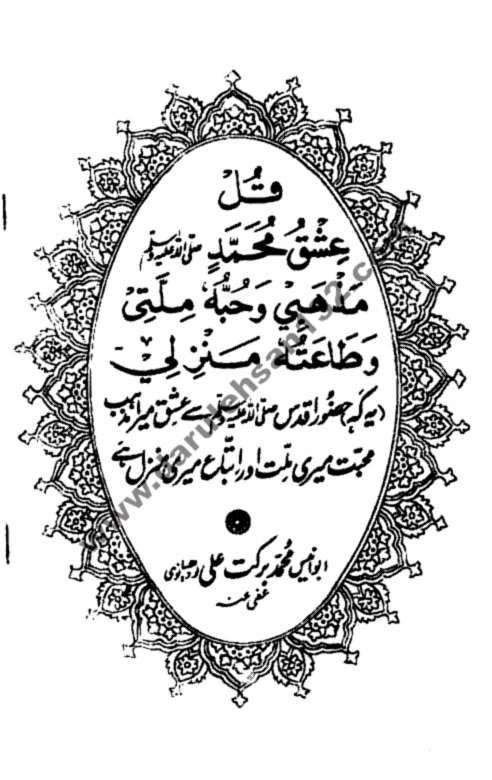 قُلْ
عِشْقُ مُحَمَّدٍ صلى الله عليه وسلم
مَذْهَبِيْ وَحُبُّهٗ مِلَّتِيْ
وَطَاعَتُهٗ مَنْزِلِيْ
(یہ کہ) حضور اقدس صلی اللہ علیہ وسلم سے عشق میرا مذہب
محبت میری ملت اور اتباع میری منزل ہے
ابو انیس محمد برکت علی لدھیانوی
عفی عنہ